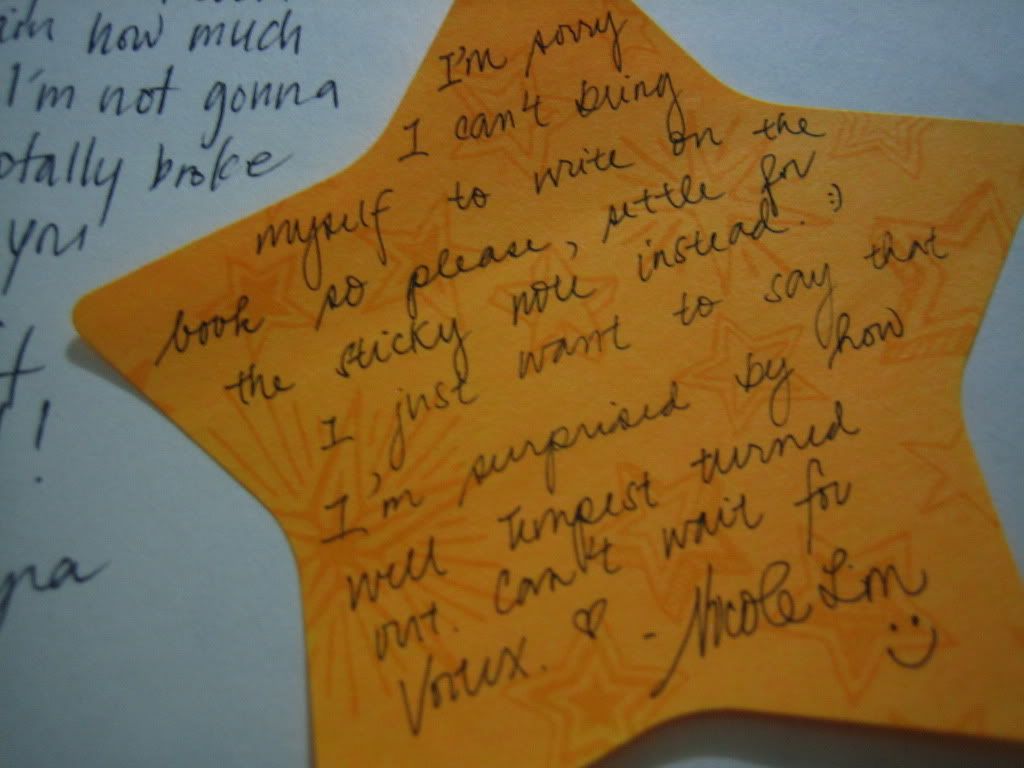 how much
I'm not gonna
totally broke
you
!
I'm sorry
I can't bring
myself to write on the
book so please, settle for
the sticky note instead. :)
I just want to say that
I'm surprised by how
well Tempest turned
out. Can't wait for
Vortex. ♡ - Nicole Lim
:)